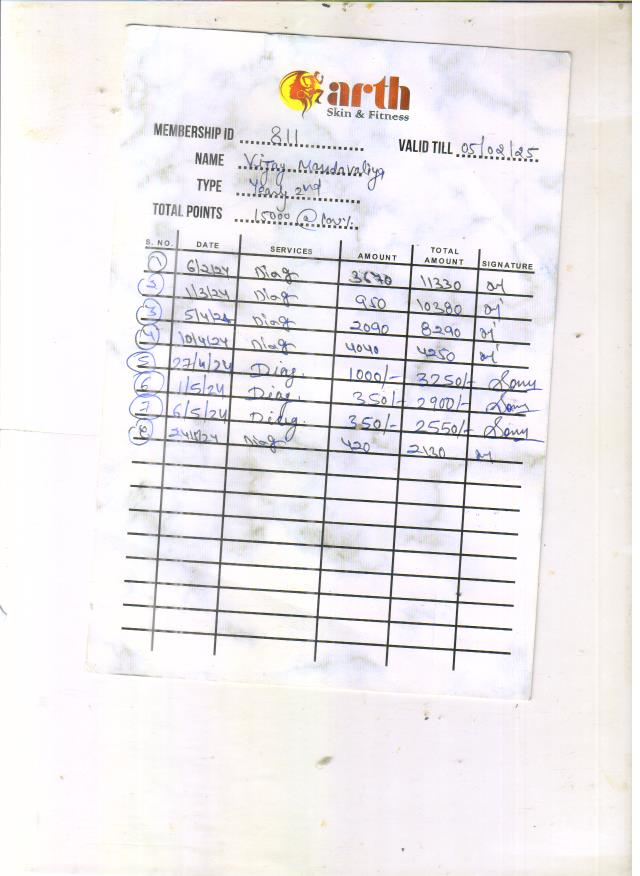 arth
Skin & Fitness
MEMBERSHIP ID 811 VALID TILL 05/02/25
NAME Vijay Mandavaliya
TYPE Yearly 2nd
TOTAL POINTS 15000 @
S. NO. DATE SERVICES AMOUNT TOTAL AMOUNT SIGNATURE
1 6/2/24 Diag 3670 11330
2 1/3/24 Diag 950 10380
3 5/4/24 Diag 2090 8290
4 10/4/24 Diag 4040 4250
5 27/4/24 Diag. 1000/- 3250/- Sonu
6 1/5/24 Diag. 350/- 2900/- Sonu
7 6/5/24 Diag. 350/- 2550/- Sonu
8 Diag 420 2130